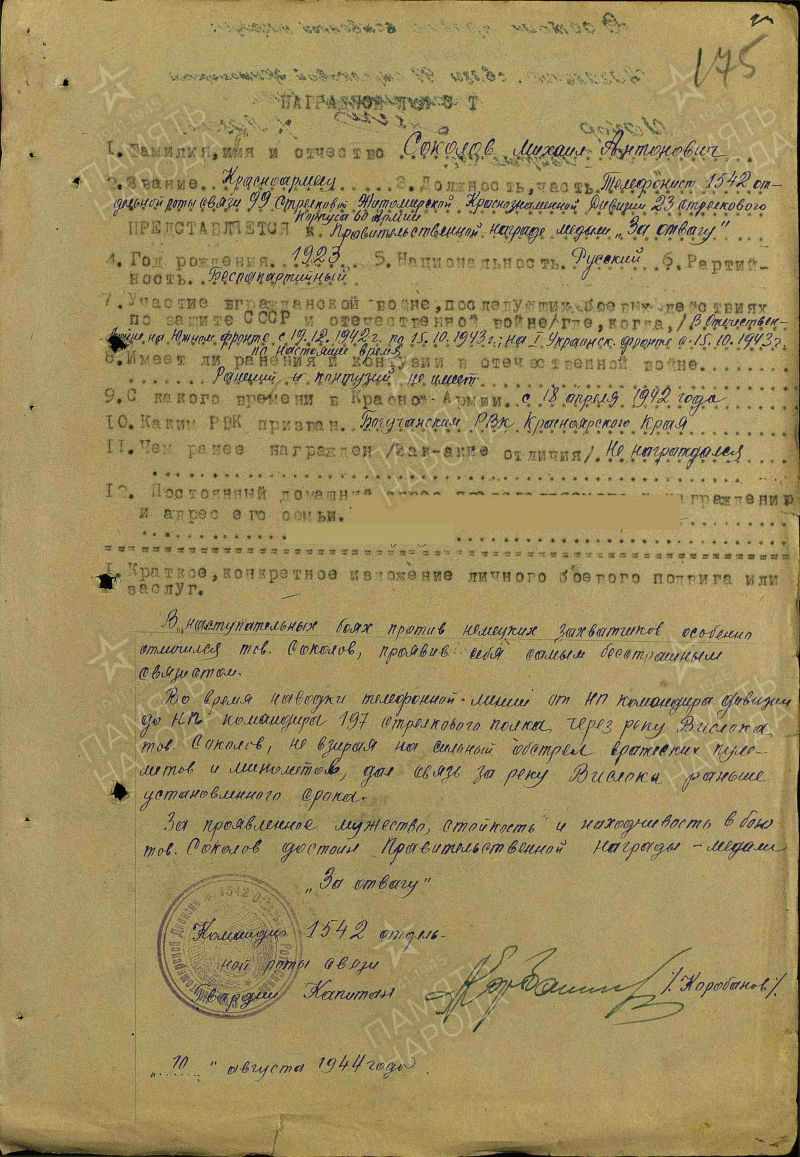 175
НАГРАДНОЙ ЛИСТ
1. Фамилия, имя и отчество Соколов Михаил Антонович
2. Звание Красноармеец 3. Должность, часть Телефонист 1542 от-
дельной роты связи 99 Стрелковой Житомирской Краснознаменной Дивизии 23 стрелкового
Корпуса 60 Армии
ПРЕДСТАВЛЯЕТСЯ к Правительственной награде медали „За отвагу"
4. Год рождения 1923 5. Национальность Русский 6. Партий-
ность Беспапартийный
7. Участие в гражданской войне, последующих боевых действиях
по защите СССР и отечественной войне /где, когда,/ В Отечествен-
войне на Южном фронте с 19.12.1942г. по 15.10.1943г.; на I Украинск. фронте с 15.10.1943г.
по настоящее время
8. Имеет ли ранения и контузии в отечественной войне
Ранений и контузий не имеет
9. С какого времени в Красной Армии с 18 апреля 1942 года
10. Каким РВК призван Богучанским РВК Красноярского Края
11. Чем ранее награжден /за какие отличия/ Не награждался
12. Постоянный домашний
награждению
и адрес его семьи.
I. Краткое, конкретное изложение личного боевого подвига или
заслуг.
В наступательных боях против немецких захватчиков особенно
отличился тов. Соколов, проявив себя самым бесстрашным
связистом.
Во время наводки телефонной линии от НП командира дивизии
до НП командира 197 стрелкового полка, через реку Вислока
тов. Соколов, не взирая на сильный обстрел вражеских пуле-
метов и минометов, дал связь за реку Вислока раньше
установленного срока.
За проявленное мужество, стойкость и находчивость в бою
тов. Соколов достоин Правительственной награды – медали
„За отвагу"
Командир 1542 отдель-
ной роты связи
Гвардии Капитан /Коробанов/.
„10" августа 1944 года.
ПАМЯТЬ НАРОДА